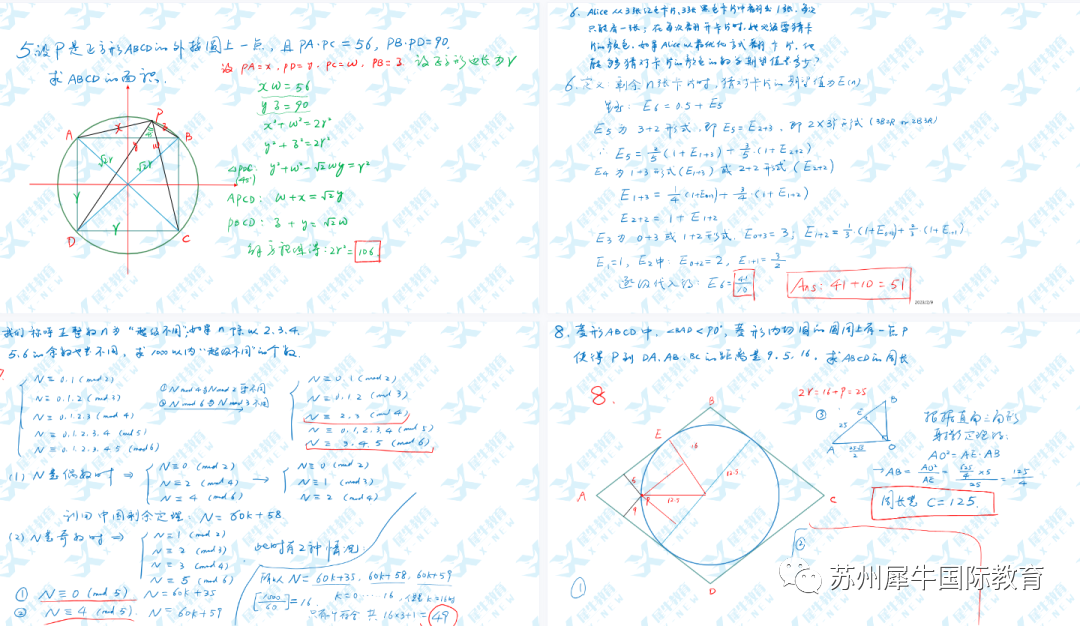 5.设P是正方形ABCD的外接圆上一点,且PA·PC=56, PB·PD=90,
求ABCD的面积.
设PA=x, PD=y, PC=w, PB=z 设正方形边长为r
xw=56
yz=90
x²+w²=2r²
y²+z²=2r²
△PDC: y²+w²-√2wy=r²
(45°)
APCD: w+x=√2y
PBCD: z+y=√2w
解方程得:2r²=106
A
P
B
D
C
x
z
y
w
√2r
√2r
r
r
6.
6.定义:剩余n张卡片时,猜对卡片的期望值为E(n)
E₆=0.5+E₅
E₅为3+2形式,即E₅=E₂₊₃,即2×3形式(3B2R or 2B3R)
∴E₅=2/5(1+E₁₊₃)+3/5(1+E₂₊₂)
E₄为1+3形式(E₁₊₃)或2+2形式(E₂₊₂)
E₁₊₃=1/4(1+E₀₊₃)+3/4(1+E₁₊₂)
E₂₊₂=1+E₁₊₂
E₃为0+3或1+2形式.E₀₊₃=3; E₁₊₂=1/3(1+E₀₊₂)+2/3(1+E₁₊₁)
E₁=1, E₂中:E₀₊₂=2, E₁₊₁=3/2
逐级代入得:E₆=41/10
Ans: 41+10=51
我们称呼正整数n为"超级不同",如果n除以2.3.4.
5.6的余数些不同,求1000以内"超级不同"的个数.
N≡0.1(mod 2)
N≡0.1.2(mod 3)
N≡0.1.2.3(mod 4)
N≡0.1.2.3.4(mod 5)
N≡0.1.2.3.4.5(mod 6)
①N mod 4与N mod 2要不同
②N mod 6与N mod 3不同
N≡0.1(mod 2)
N≡0.1.2(mod 3)
N≡2.3(mod 4)
N≡0.1.2.3.4(mod 5)
N≡3.4.5(mod 6)
(1)N是偶数时⇒
N≡0(mod 2)
N≡2(mod 4)
N≡4(mod 6)
→
N≡0(mod 2)
N≡1(mod 3)
N≡2(mod 4)
利用中国剩余定理: N=60k+58.
(2)N是奇数时⇒
N≡1(mod 2)
N≡2(mod 3)
N≡3(mod 4)
N≡5(mod 6)
此时有2种情况
①N≡0(mod 5) N=60k+35
②N≡4(mod 5). N=60k+59
所以N=60k+35, 60k+58, 60k+59
[1000/60]=16. k=0···16,
共16×3+1=49
8.菱形ABCD中,∠BAD<90°,菱形内切圆的圆周上有一点P
使得P到DA.AB.BC的距离是9.5.16.求ABCD的周长
8.
2r=16+9=25
③
根据直角三角形
射影定理得.
AO²=AE·AB
周长是C=125.
A
B
C
D
E
P
16
12.5
12.5
9
A
B
E
O
25
①
②
苏州犀牛国际教育